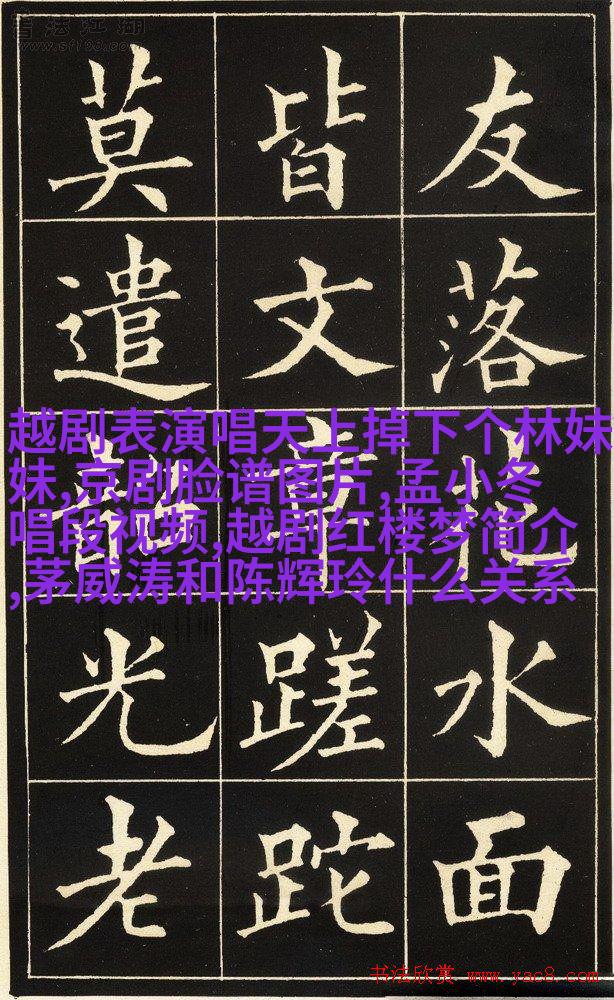 书法江湖
www.sf108.com
友落花水面
皆文章蹉跎
莫遣韶光老
越剧表演唱天上掉下个林妹
妹,京剧脸谱图片,孟小冬
唱段视频,越剧红楼梦简介
,茅威涛和陈辉玲什么关系
书法欣赏 www.yac8.com